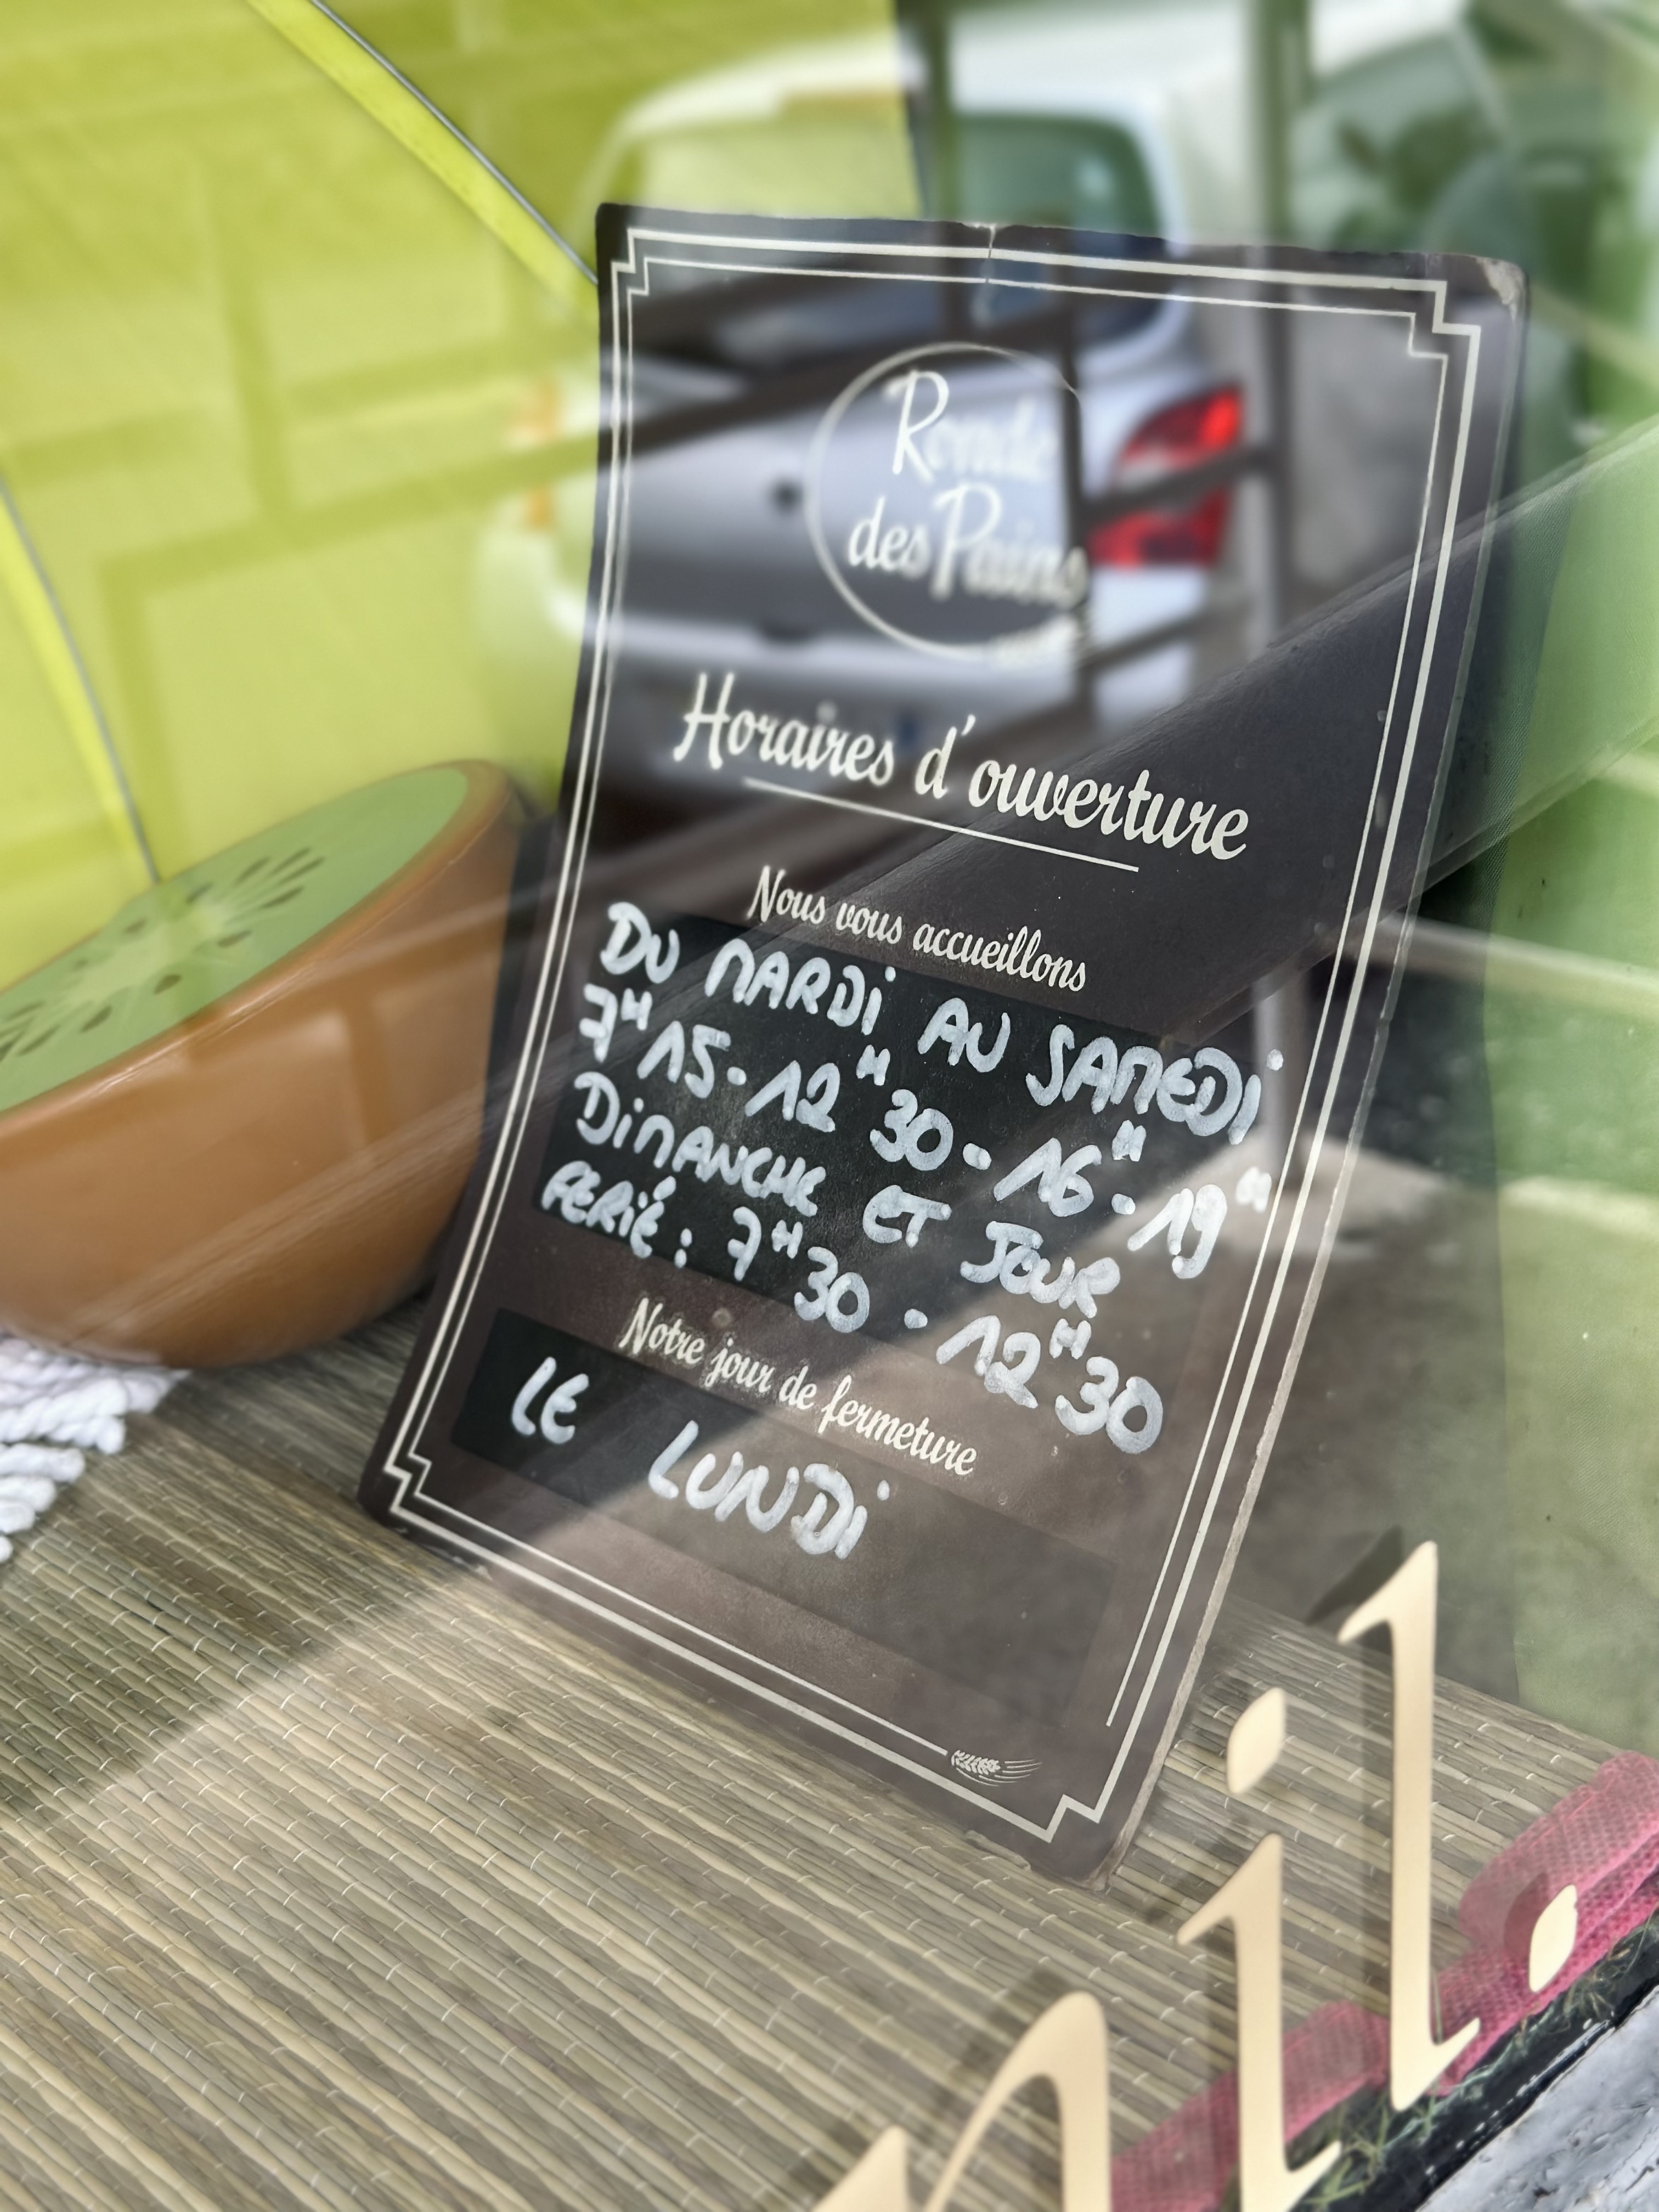 Ronde
des Pains
Horaires d'ouverture
Nous vous accueillons
DU MARDi AU SAMEDi
7H15-12H30-16H-19H
DiMANCHE ET JOUR
FERiÉ: 7H30-12H30
Notre jour de fermeture
LE LUNDi